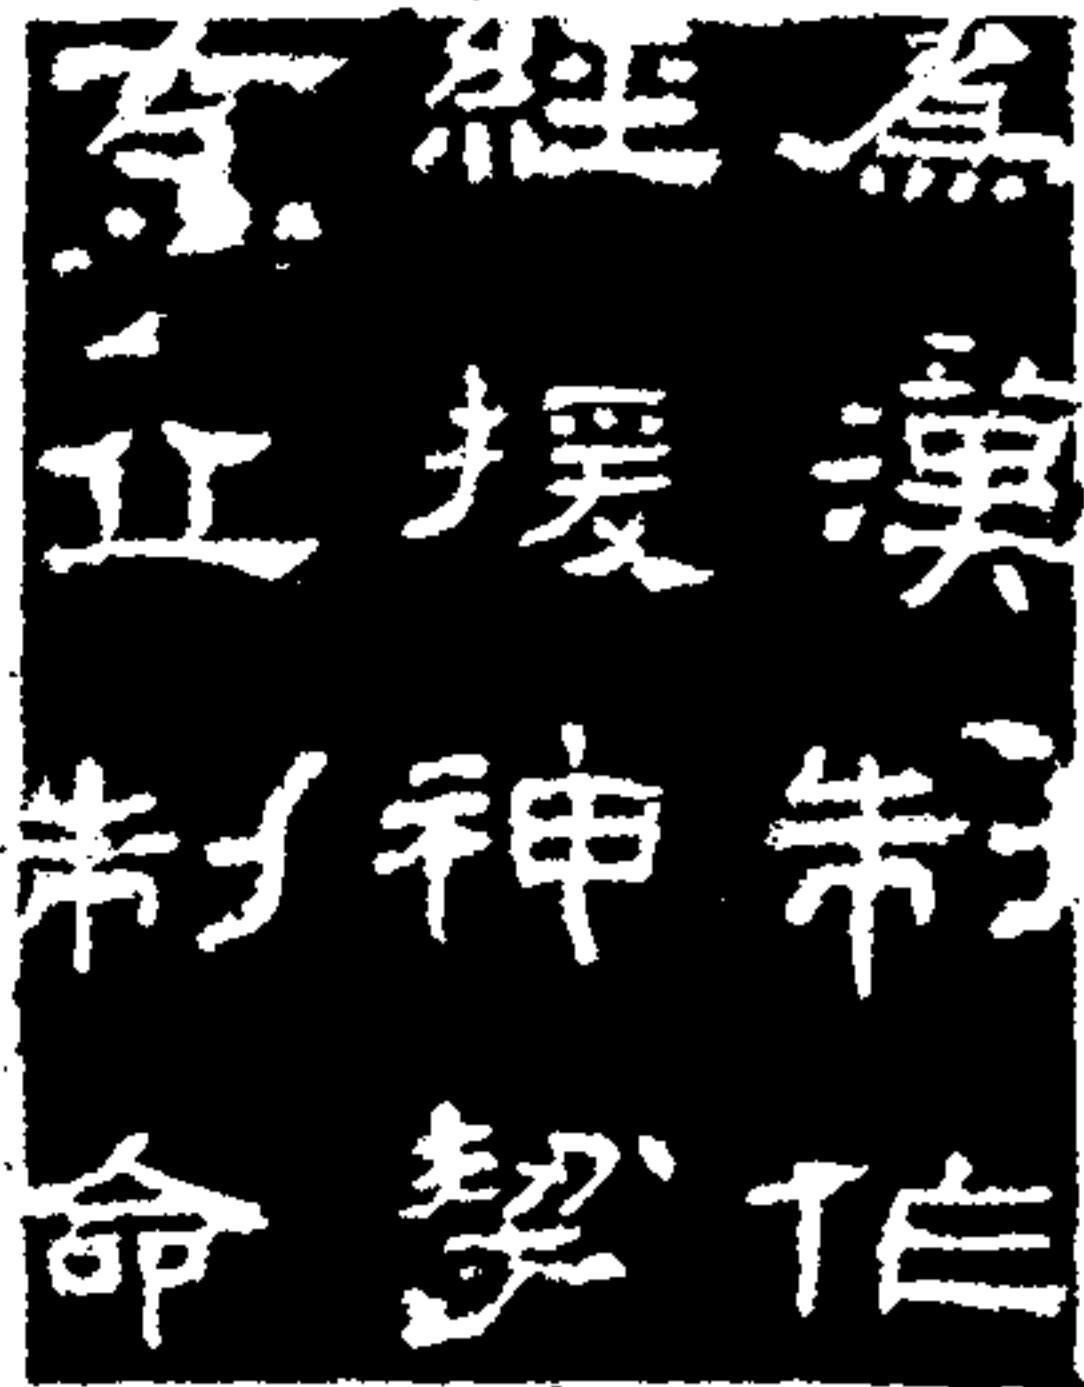 爲漢制作
經援神挈
玄丘制命